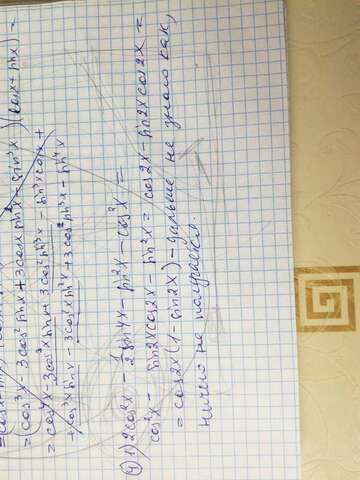 = (cos³x - 3cos²x sinx + 3cosx sin²x - sin³x)(cosx + sinx) =
= cos⁴x - 3cos³x sinx + 3cos²x sin²x - sin³x cosx +
+ cos³x sinx - 3cos²x sin²x + 3cosx sin³x - sin⁴x
④ 1) 2cos²x - ½ sin4x - sin²x - cos²x =
cos²x - sin2x cos2x - sin²x = cos2x - sin2x cos2x =
= cos2x (1 - sin2x) - дальше не знаю как,
ничего не получается.